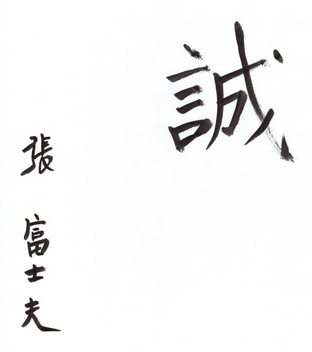 誠
張 富士夫